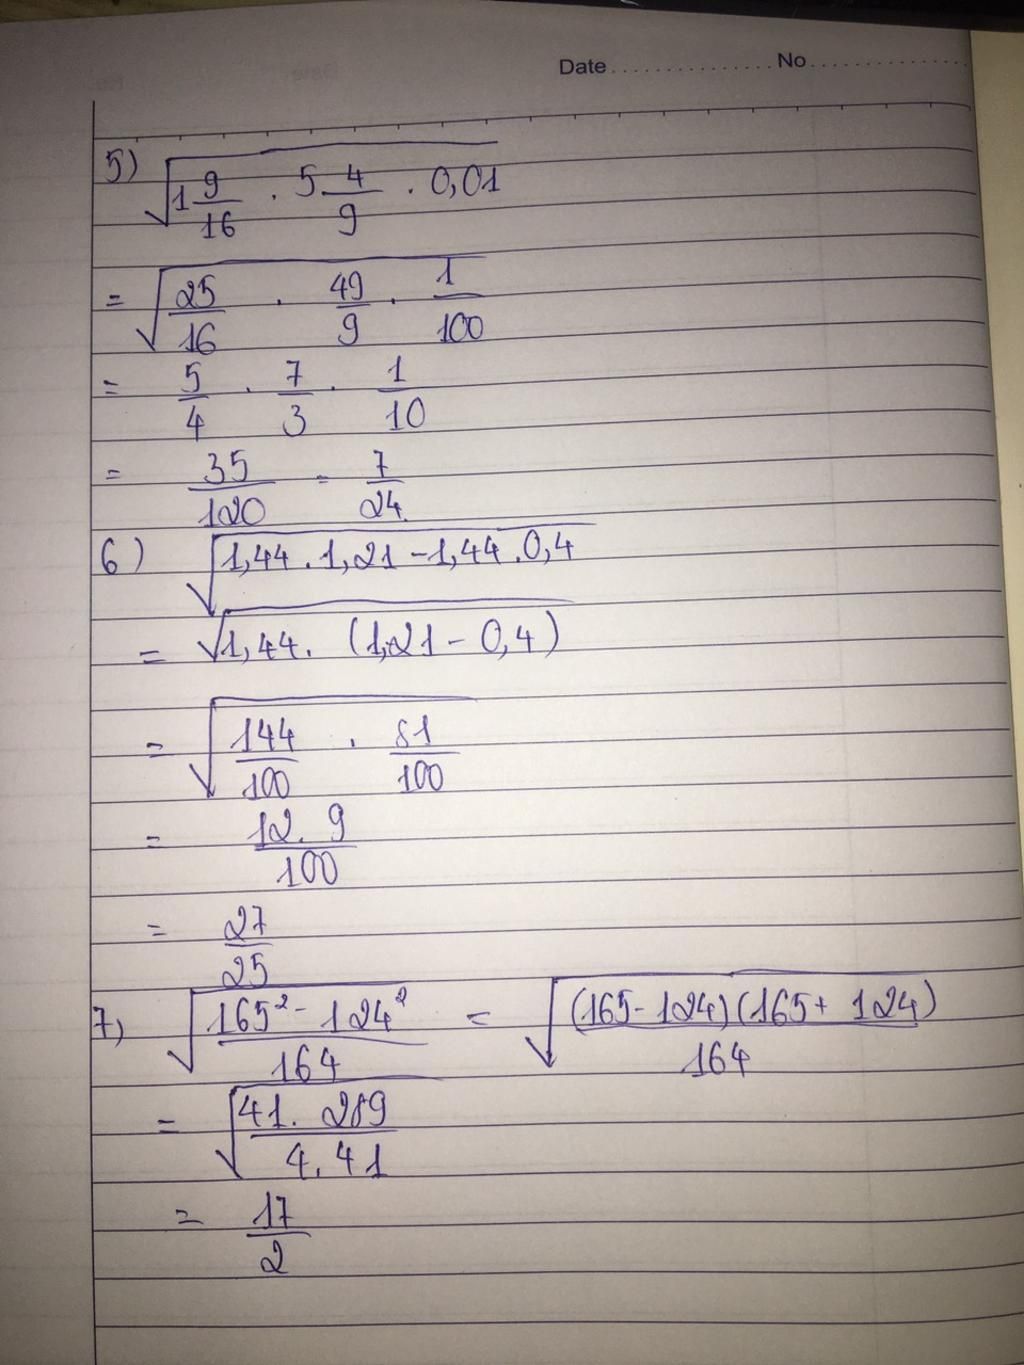 Date............... No...............
5) √(1 9/16 . 5 4/9 . 0,01)
= √(25/16 . 49/9 . 1/100)
= 5/4 . 7/3 . 1/10
= 35/120 = 7/24
6) √(1,44 . 1,21 - 1,44 . 0,4)
= √(1,44. (1,21 - 0,4))
= √(144/100 . 81/100)
= (12. 9)/100
= 27/25
7) √((165² - 124²)/164) = √((165 - 124)(165 + 124)/164)
= √((41. 289)/(4. 41))
= 17/2